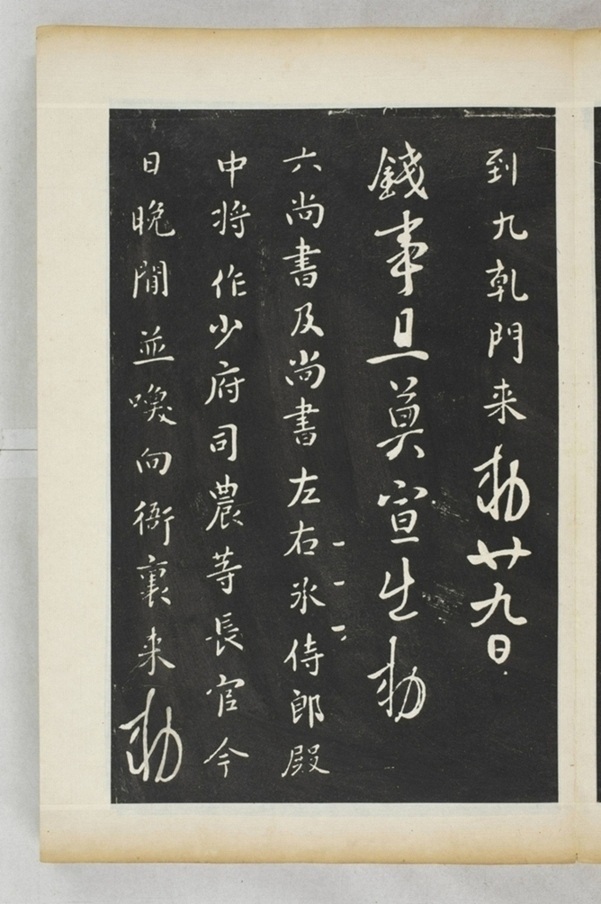 到九乹門来勅廿九日
錢事且莫宣生勅
六尚書及尚書左右丞侍郎殿
中将作少府司農等長官今
日晚間並喚向衙裏来勅